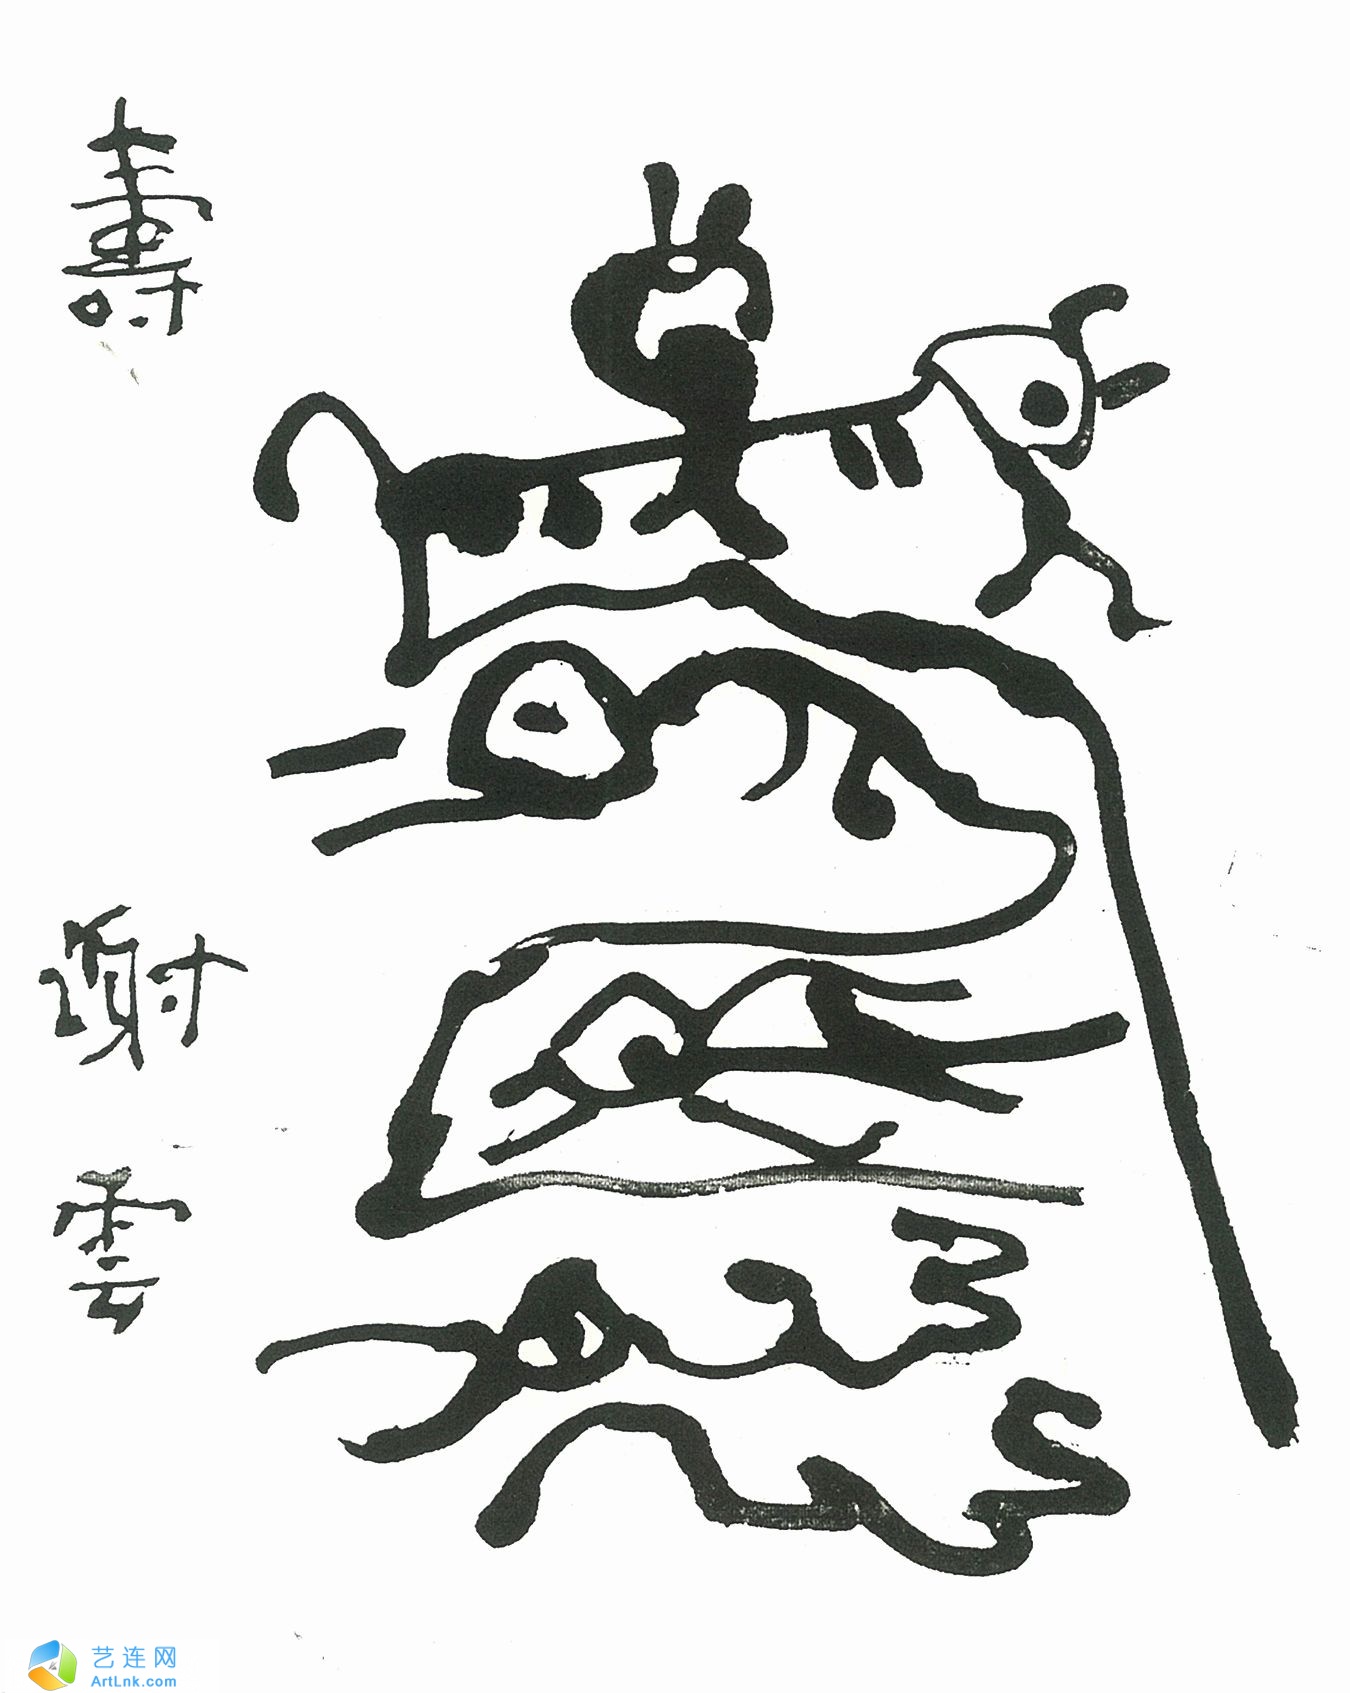 壽
谢
雲
艺连网
ArtLnk.com